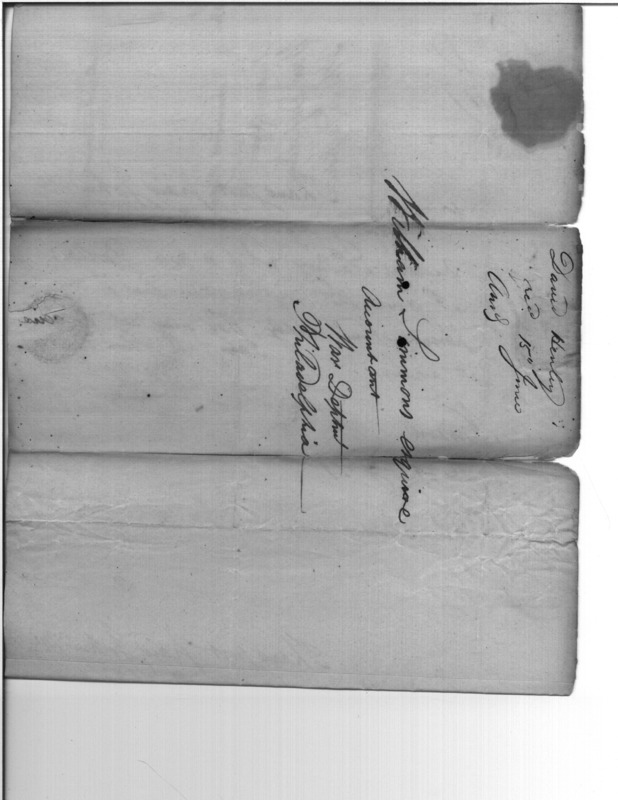 David Henley
recd 15 June
Ansd
William Simmons esquire
Accountant
War Deptmt
Philadelphia